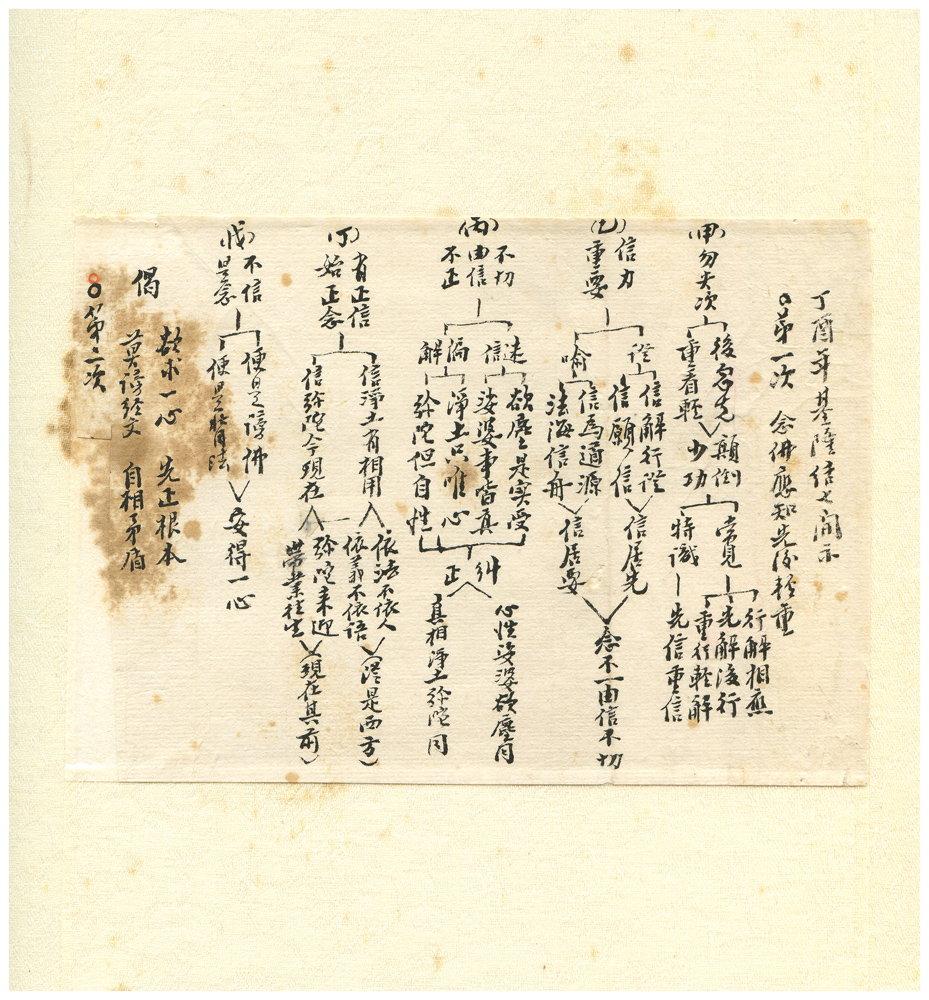 丁酉年基隆信七開示
第一次 念佛應知先後輕重
(甲)勿失次
後奪先
重看輕
顛倒
少功
常見
特識
行解相應
先解後行
重行輕解
先信重信
(乙)信力
重要
證
信解行證
信願行信
信居先
喻
信為道源
法海信舟
信居要
念不一由信不切
(丙)不切
由信
不正
迷
信
欲塵是實受
娑婆事皆真
偏
解
淨土只唯心
弥陀但自性
糾
正
心性娑婆欲塵同
真相淨土弥陀同
(丁)有正信
始正念
信淨土有相用
信弥陀今現在
依法不依人
依義不依語
弥陀來迎
帶業往生
(從是西方)
(現在其前)
(戊)不信
是念
便是謗佛
便是背法
妄得一心
偈
欲求一心 先正根本
莫謗經文 自相矛盾
第二次